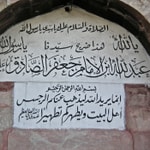 الصلاة والسلام عليك يا سيدى يا رسول الله
يا الله هذا ضريح سيدنا يا رسول الله
عبد الله ابن الإمام جعفر الصادق
بسم الله الرحمن الرحيم
إنما يريد الله ليذهب عنكم الرجس
أهل البيت ويطهركم تطهيرا